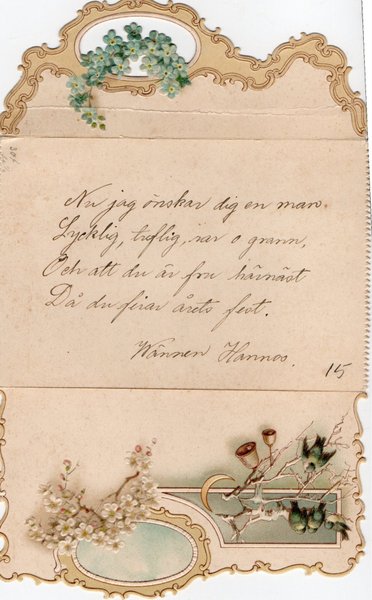 Nu jag önskar dig en man
Lycklig, treflig, rar o grann,
Och att du är fru härnäst
Då du firar årets fest.
Wännen Hannes.
115